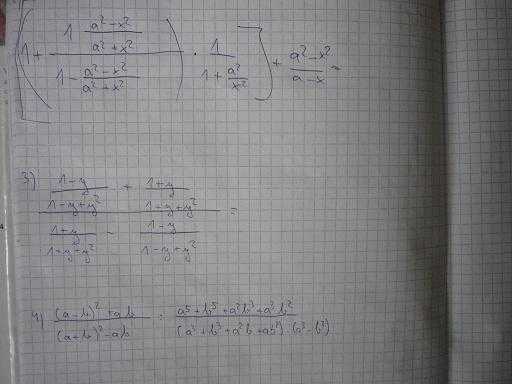 [(1 + (1 (a²-x²)/(a²+x²))/(1 - (a²-x²)/(a²+x²))) · 1/(1 + a²/x²)] + (a²-x²)/(a-x) =
3) ((1-y)/(1-y+y²) + (1+y)/(1+y+y²))/((1+y)/(1+y+y²) - (1-y)/(1-y+y²)) =
4) ((a-b)²+ab)/((a+b)²-ab) : (a⁵+b⁵+a²b³+a³b²)/((a³+b³+a²b+ab²)·(a³-b³))